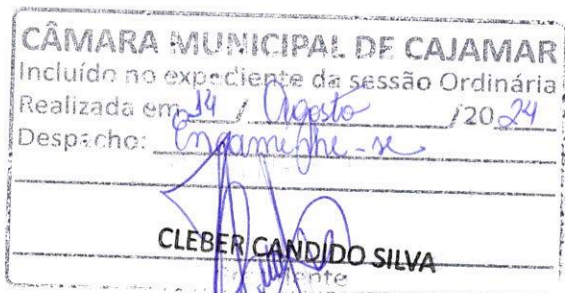 CÂMARA MUNICIPAL DE CAJAMAR
Incluído no expediente da sessão Ordinária
Realizada em 14 / Agosto /2024
Despacho: Encaminhe-se
CLEBER CANDIDO SILVA
Presidente